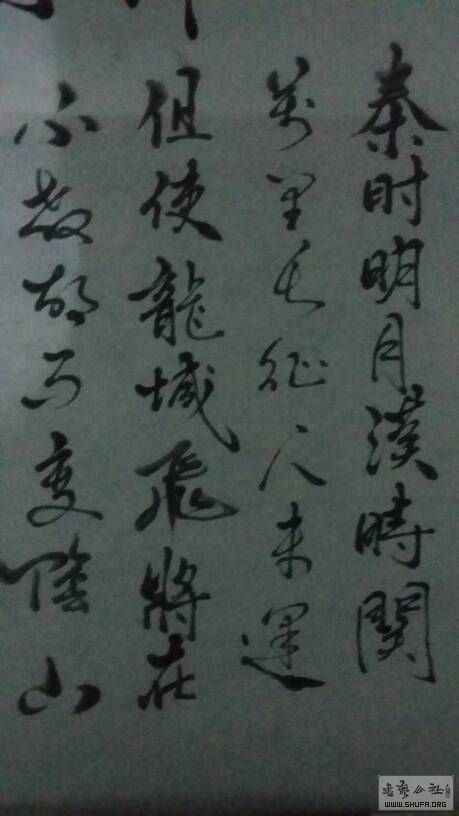 秦时明月漢時關
萬里長征人未還
但使龍城飛將在
不教胡馬度陰山
書藝公社
WWW.SHUFA.ORG